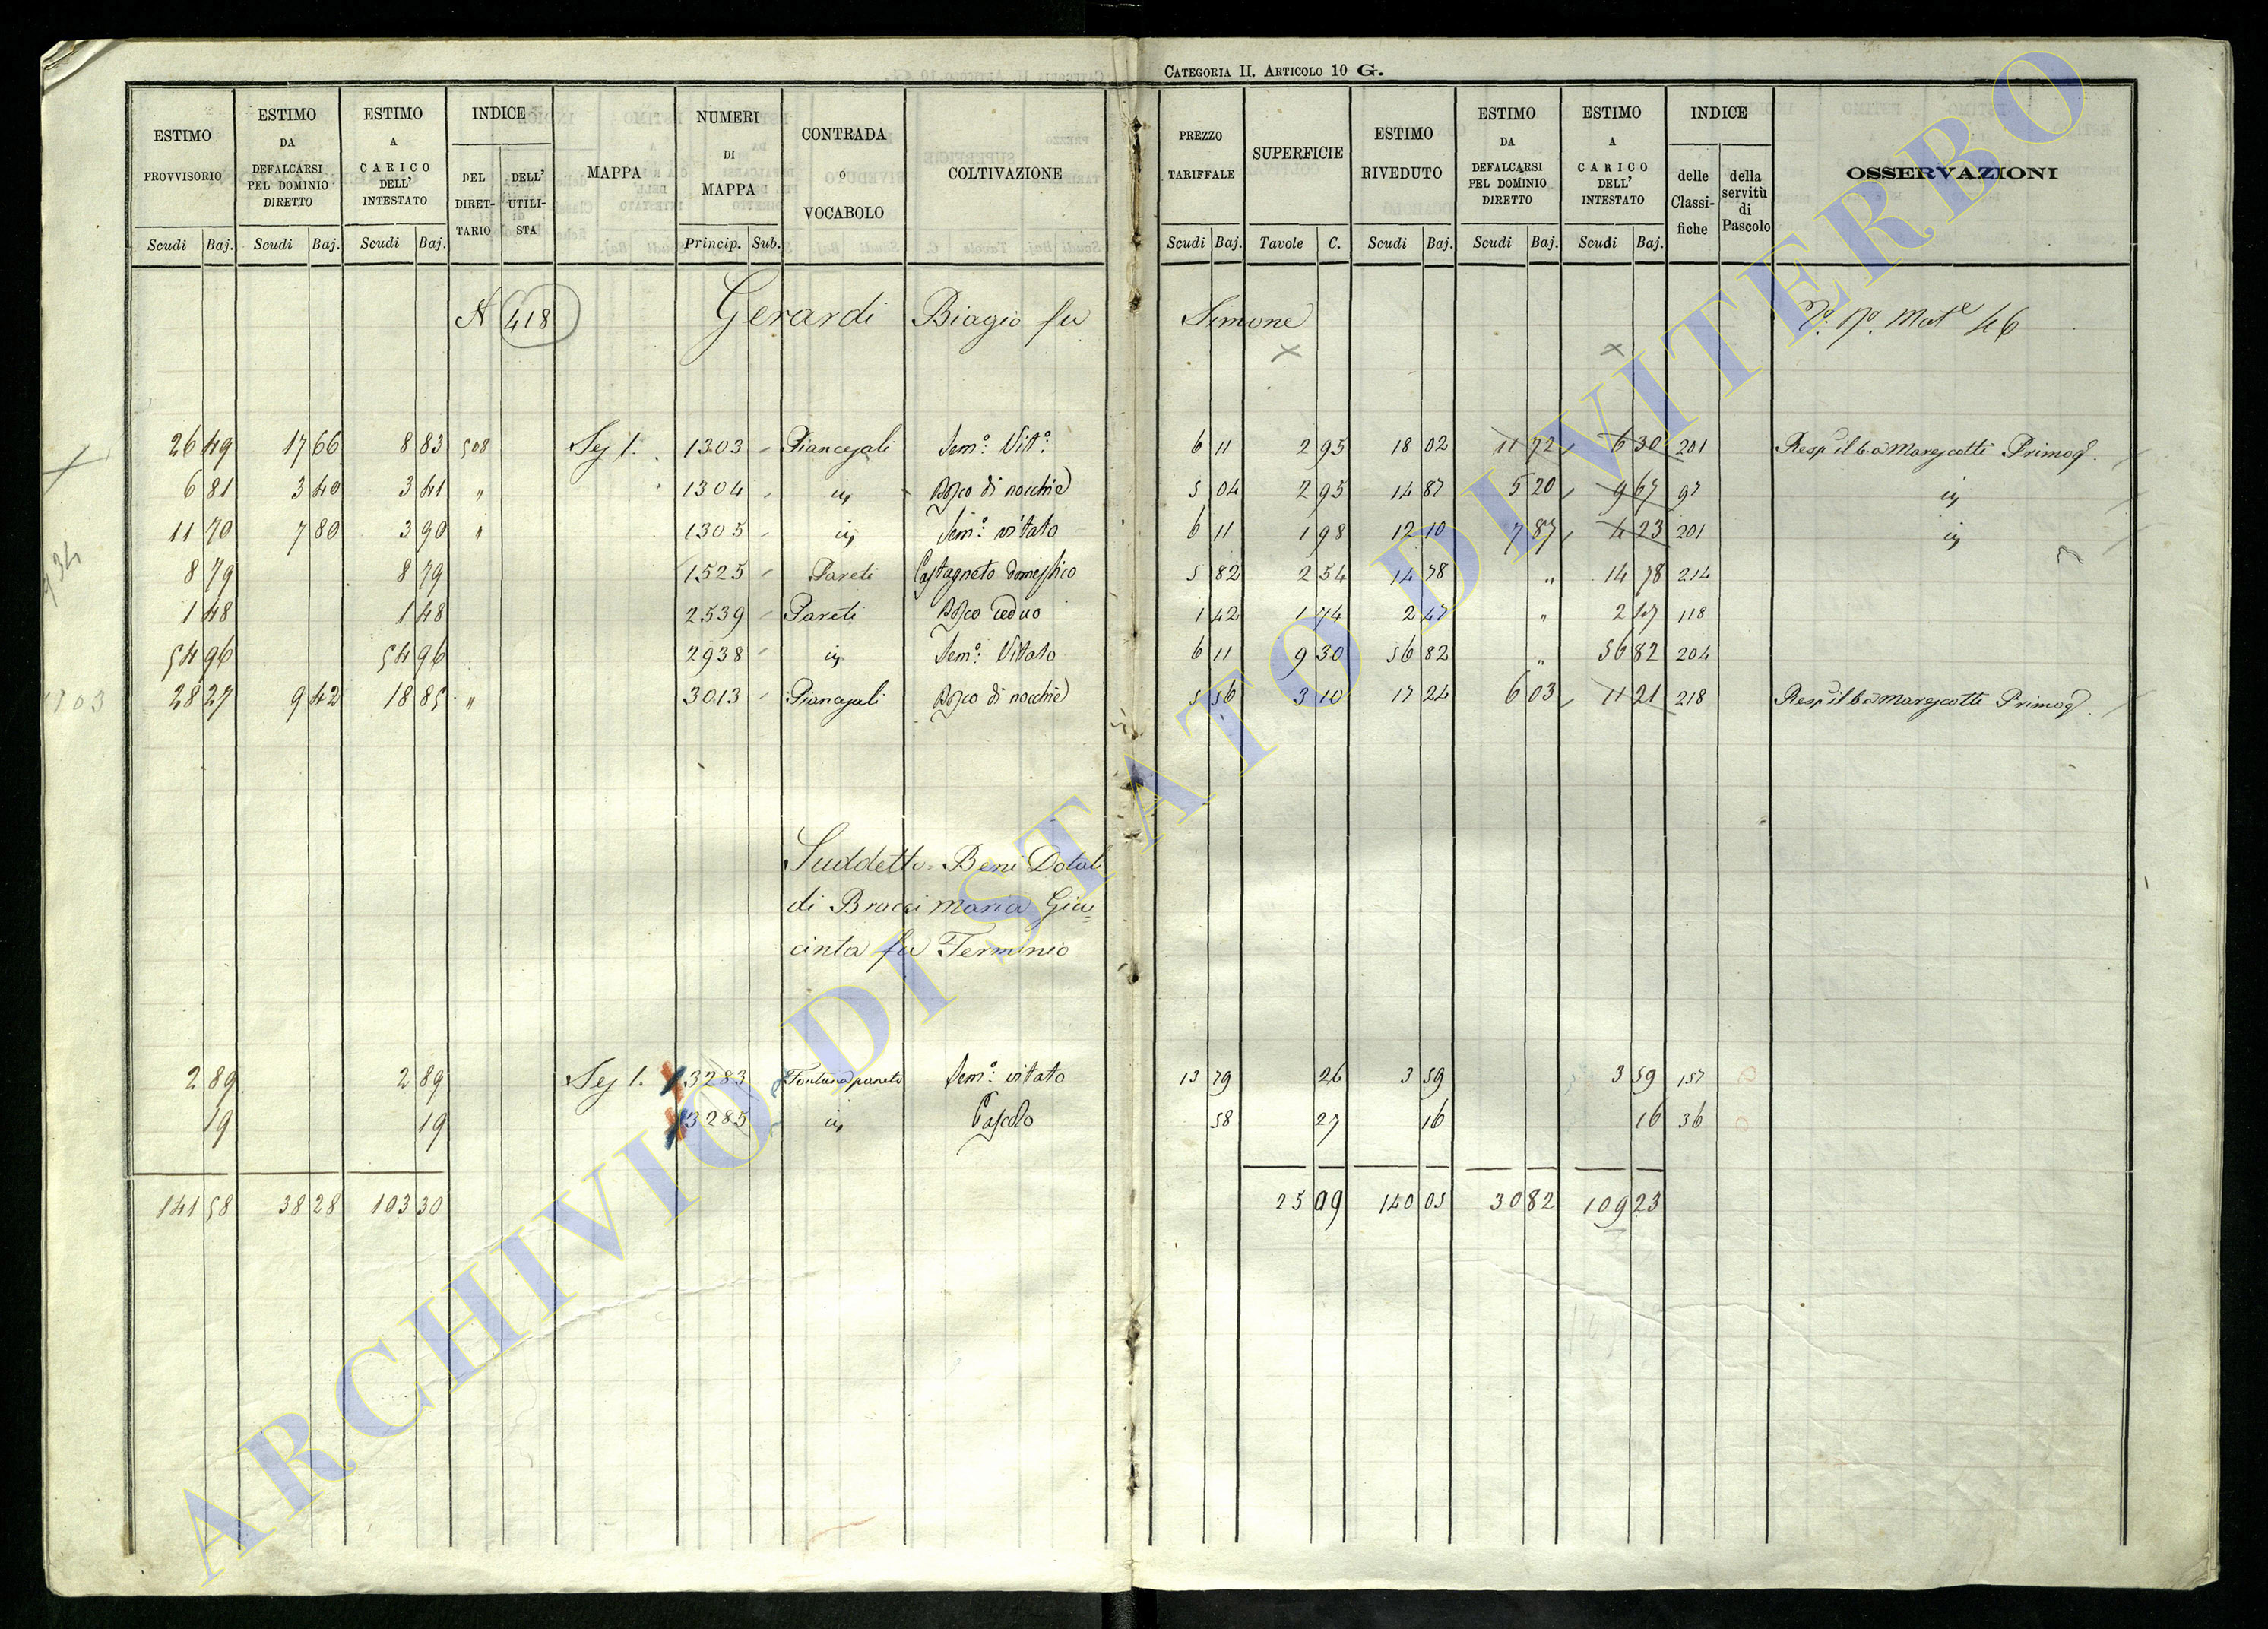 CATEGORIA II. ARTICOLO 10 G.
ESTIMO PROVVISORIO | ESTIMO DA DEFALCARSI PEL DOMINIO DIRETTO | ESTIMO A CARICO DELL' INTESTATO | INDICE | MAPPA | NUMERI DI MAPPA | CONTRADA O VOCABOLO | COLTIVAZIONE | PREZZO TARIFFALE | SUPERFICIE | ESTIMO RIVEDUTO | ESTIMO DA DEFALCARSI PEL DOMINIO DIRETTO | ESTIMO A CARICO DELL' INTESTATO | INDICE | OSSERVAZIONI
DEL DIRETTARIO | DELL' UTILISTA | delle Classifiche | della servitù di Pascolo
Scudi Baj. | Scudi Baj. | Scudi Baj. | Princip. Sub. | Scudi Baj. | Tavole C. | Scudi Baj. | Scudi Baj. | Scudi Baj.
N 418 Gerardi Biagio fu Simone 46
26 49 | 17 66 | 8 83 | 508 | Sez 1. | 1303 | Piancajali | Sem.o Vit.o | 6 11 | 2 95 | 18 02 | 11 72 | 6 30 | 201 | Marescotti Primog
6 81 | 3 40 | 3 41 | " | 1304 | Bosco di nocchie | 5 04 | 2 95 | 14 87 | 5 20 | 9 67 | 97
11 70 | 7 80 | 3 90 | " | 1305 | Sem.o vitato | 6 11 | 1 98 | 12 10 | 7 87 | 4 23 | 201
8 79 | 8 79 | 1525 | Pareti | Castagneto domestico | 5 82 | 2 54 | 14 78 | " | 14 78 | 214
1 48 | 1 48 | 2539 | Pareti | Bosco ceduo | 1 42 | 1 74 | 2 47 | " | 2 47 | 118
54 96 | 54 96 | 2938 | Sem.o Vitato | 6 11 | 9 30 | 56 82 | " | 56 82 | 204
28 27 | 9 42 | 18 85 | " | 3013 | Piancajali | Bosco di nocchie | 5 56 | 3 10 | 17 24 | 6 03 | 11 21 | 218 | Marescotti Primog
Suddetto = Beni Dotali
di Bracci Maria Gia=
cinta fu Terminio
2 89 | 2 89 | Sez 1. | 3283 | Fontana | Sem.o vitato | 13 79 | 26 | 3 59 | 3 59 | 157
19 | 19 | 3285 | Pascolo | 58 | 27 | 16 | 16 | 36
141 58 | 38 28 | 103 30 | 25 09 | 140 05 | 30 82 | 109 23
ARCHIVIO DI STATO DI VITERBO